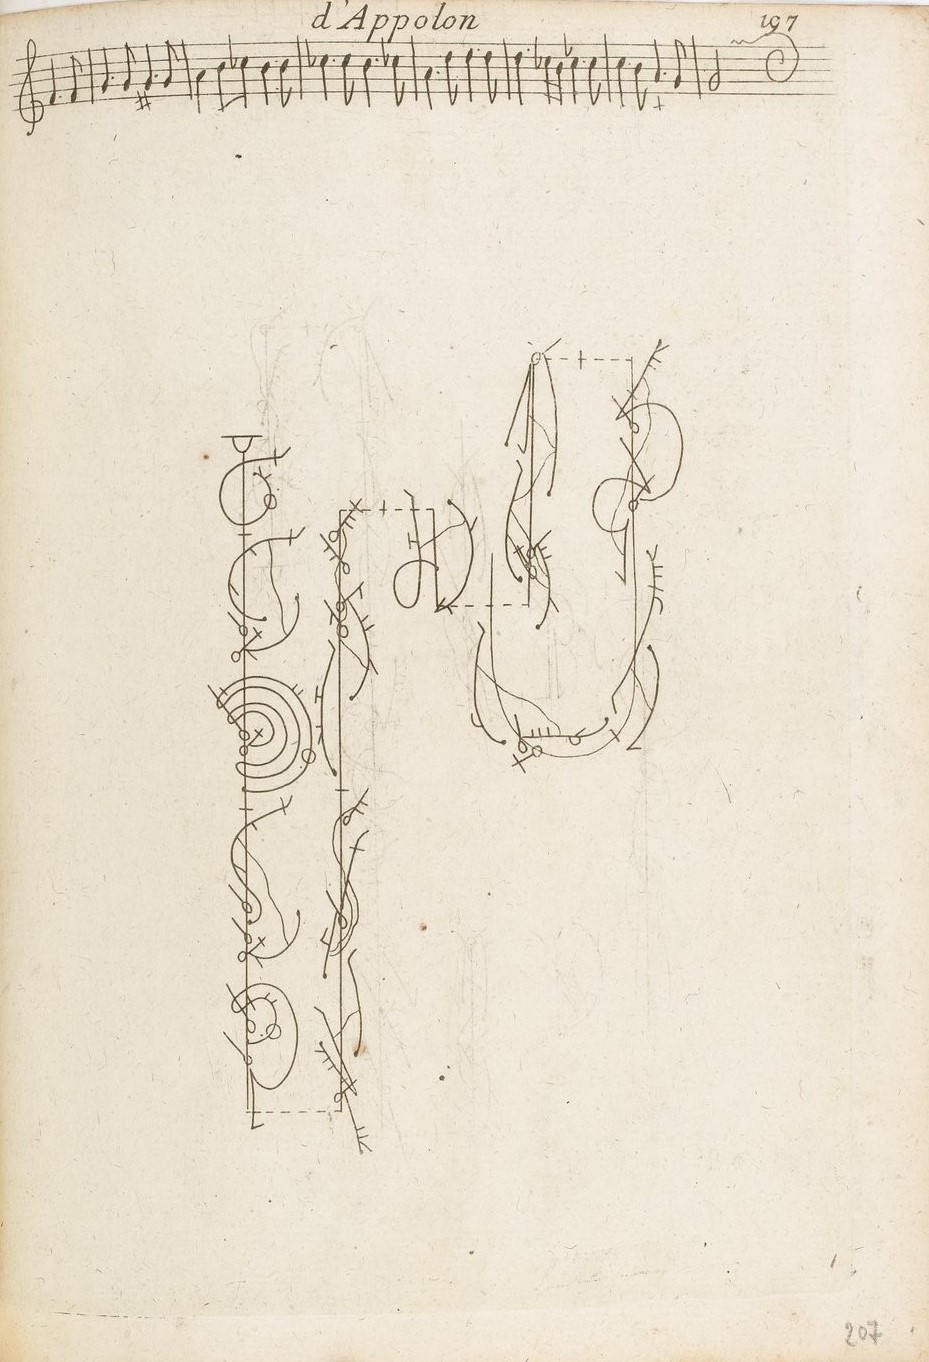 d'Appolon
197
207